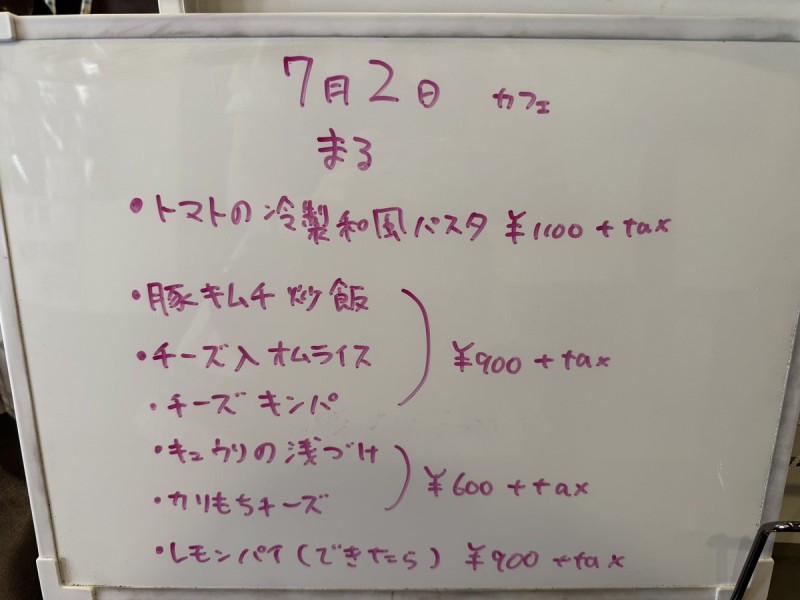 7月2日 カフェ
まる
・トマトの冷製和風パスタ ¥1100+tax
・豚キムチ炒飯
・チーズ入オムライス ¥900+tax
・チーズキンパ
・キュウリの浅づけ
・カリもちチーズ ¥600+tax
・レモンパイ(できたら) ¥900+tax